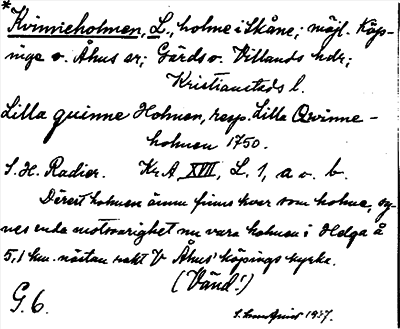 *Kvinnieholmen, L., holme i Skåne; möjl. Köp-
inge o. Åhus sr; Gärds o. Villands hdr;
Kristianstads l.
Lilla quinne Holmen, resp. Lilla Qwinne-
holmen 1750.
S. H. Radier. Kr. A XVII, L. 1, a o. b.
Därest holmen ännu finns kvar som holme, sy-
nes enda motsvarighet nu vara holmen i Helga å
5,1 km. nästan rakt V Åhus' köpings kyrka.
(Vänd!)
G. 6.
1937.